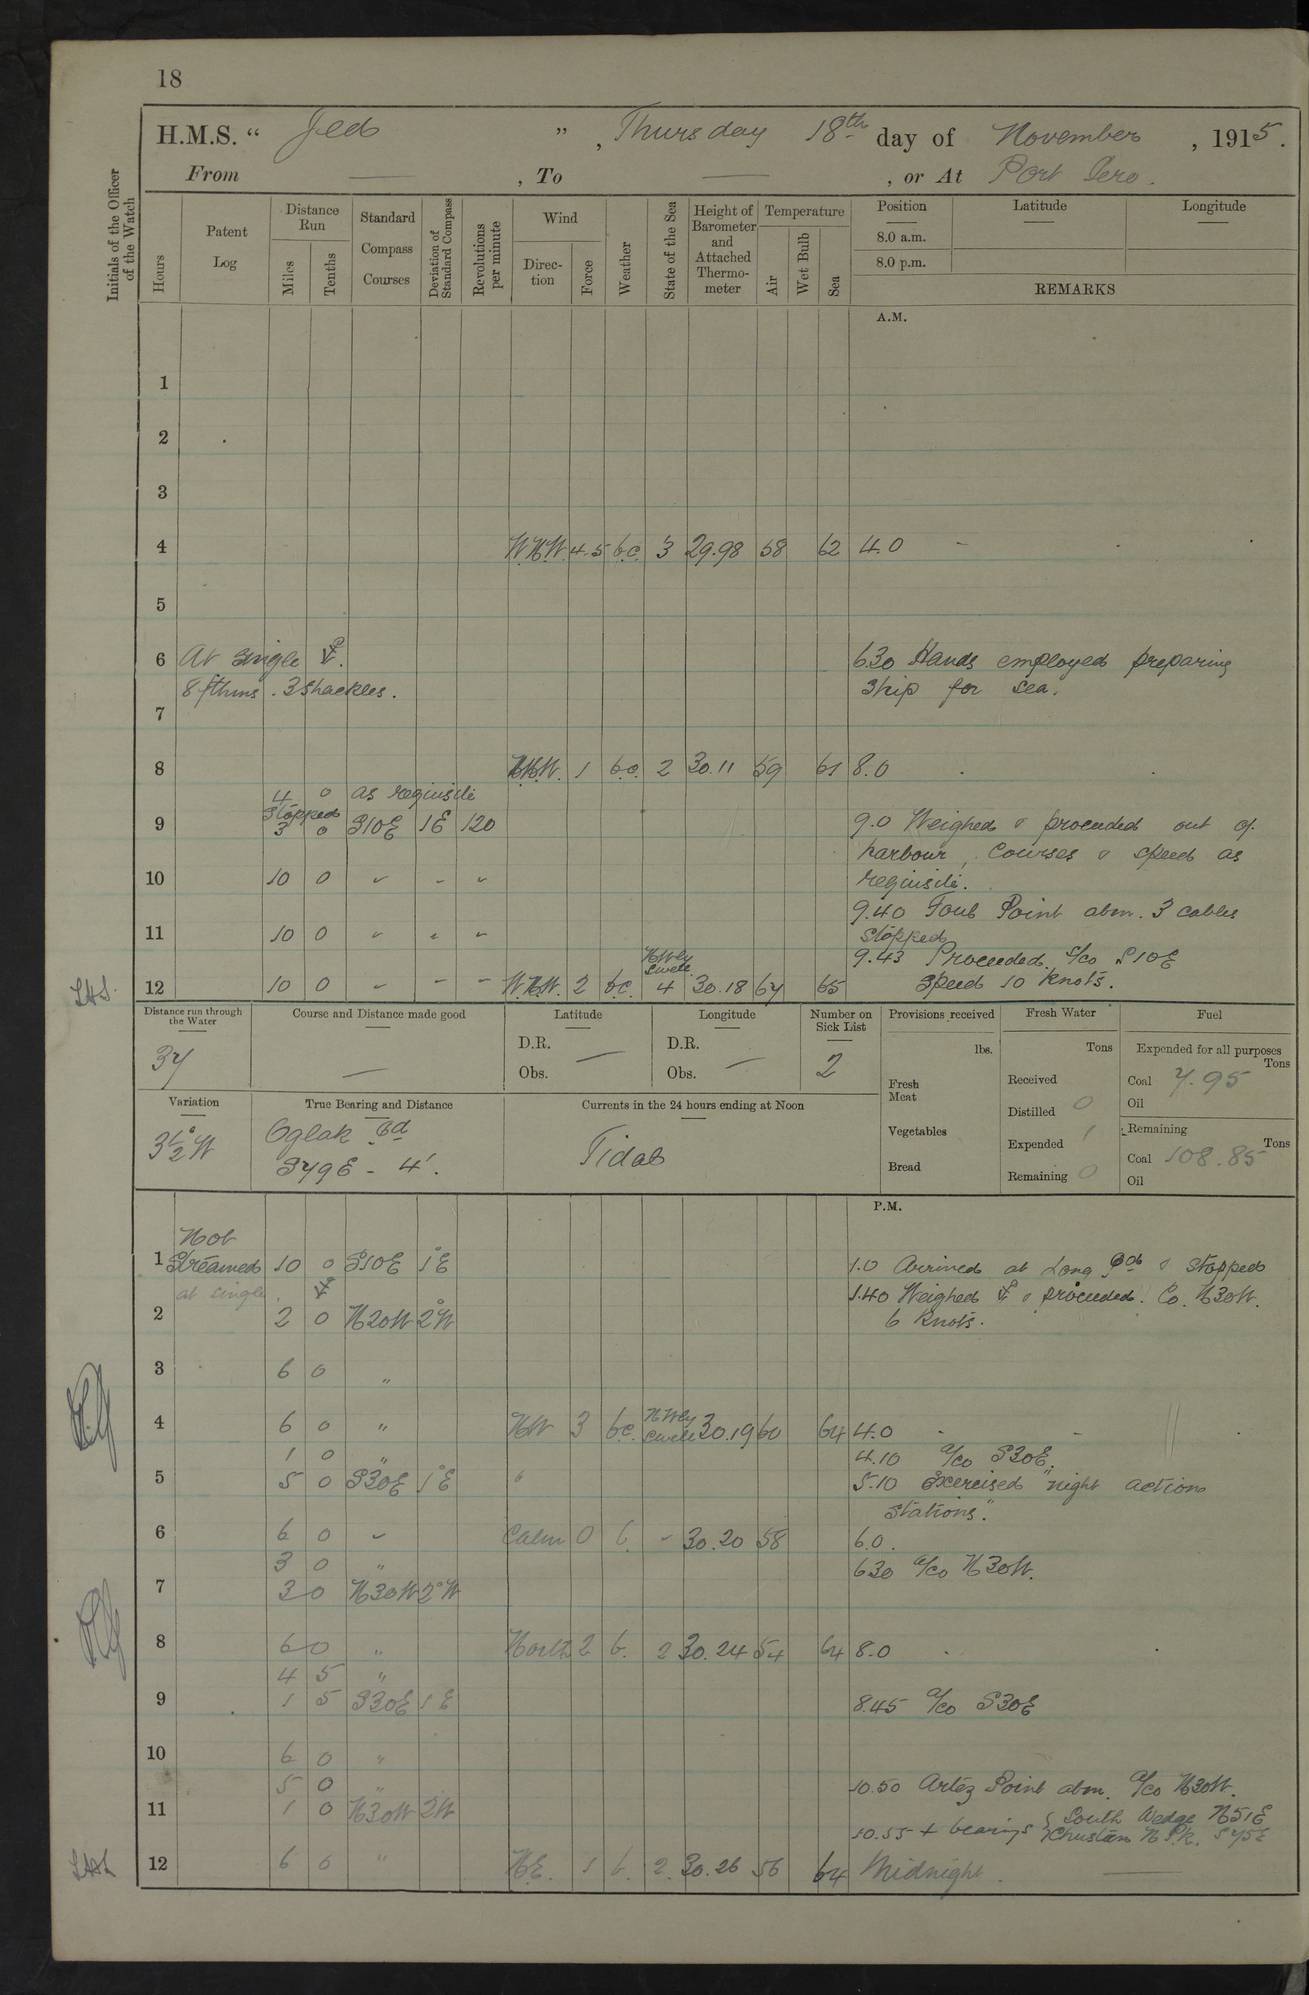 18
H.M.S. “ Jed ” , Thursday 18th day of November , 1915.
From — , To — , or At Port Iero.
Initials of the Officer of the Watch
Hours
Patent Log
Distance Run
Miles
Tenths
Standard Compass Courses
Deviation of Standard Compass
Revolutions per minute
Wind
Direction
Force
Weather
State of the Sea
Height of Barometer and Attached Thermometer
Temperature
Air
Wet Bulb
Sea
Position
8.0 a.m.
8.0 p.m.
Latitude
Longitude
REMARKS
A.M.
1
2
3
4 W.N.W. 4.5 b.c. 3 29.98 58 62 4.0 -
5
6 At single 630 Hands employed preparing
8 fthms. 3 Shackles. Ship for sea.
7
8 N.N.W. 1 b.c. 2 30.11 59 61 8.0
4 0 as requisite
Stopped
9 3 0 S10E 1E 120 9.0 Weighed & proceeded out of
harbour, Courses & speed as
10 10 0 " " " requisite.
9.40 Foul Point abm. 3 cables
11 10 0 " " " Stopped
9.43 Proceeded. a/co S10E
N Wly Swell
12 10 0 " " " W.N.W. 2 bc. 4 30.18 64 65 Speed 10 knots.
Distance run through the Water
37
Course and Distance made good
—
Latitude
D.R.
Obs. —
Longitude
D.R.
Obs. —
Number on Sick List
2
Provisions received
lbs.
Fresh Meat
Vegetables
Bread
Fresh Water
Tons
Received
Distilled 0
Expended 1
Remaining 0
Fuel
Expended for all purposes
Tons
Coal 7.95
Oil
Remaining
Tons
Coal 108.85
Oil
Variation
3½° W
True Bearing and Distance
Oglak Id
S79E - 4'.
Currents in the 24 hours ending at Noon
Tidal
P.M.
Not
1 Streamed 10 0 S10E 1°E 1.0 Arrived at Long Id & stopped
at single. 1.40 Weighed & proceeded. Co. N30W.
2 2 0 N20W 2°W 6 Knots.
3 6 0 "
4 6 0 " NW 3 bc. N Wly Swell 30.19 60 64 4.0 - -
1 0 " 4.10 a/co S30E.
5 5 0 S30E 1°E 5.10 Exercised "night action
stations."
6 6 0 " Calm 0 b. " 30.20 58 6.0.
3 0 " 630 a/co N30W.
7 3 0 N30W 2°W
8 6 0 " North 2 b. 2 30.24 54 64 8.0
4 5 "
9 1 5 S30E 1E 8.45 a/co S30E
10 6 0 "
5 0 " 10.50 Artez Point abm. a/co N30W.
11 1 0 N30W 2W
10.55 + bearings { South Wedge N51E
N Pk. S75E
12 6 0 " N.E. 1 b. 2. 30.26 56 64 Midnight.